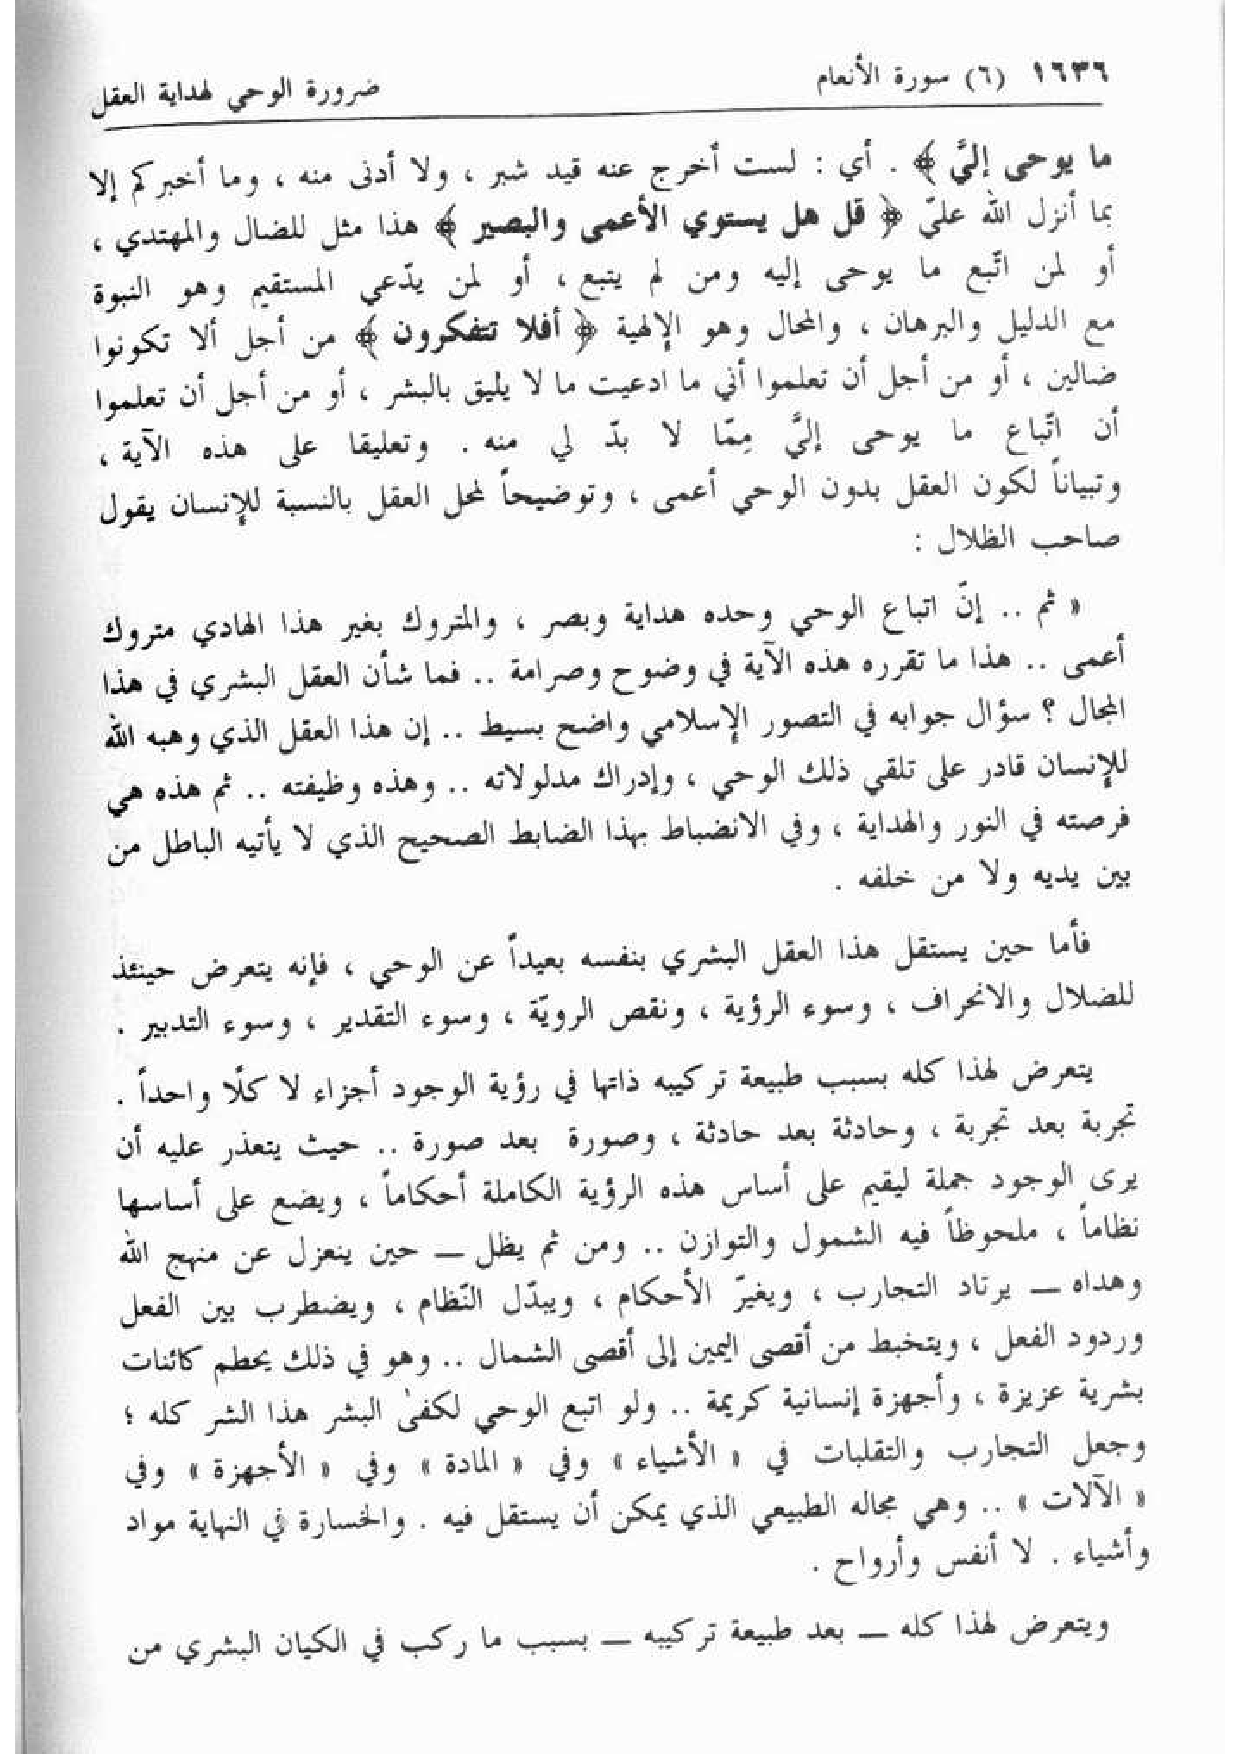 ١٦٣٦ (٦) سورة الأنعام ضرورة الوحي لهداية العقل
ما يوحى إليَّ ﴾ . أي : لست أخرج عنه قيد شبر ، ولا أدنى منه ، وما أخبركم إلا
بما أنزل الله عليّ ﴿ قل هل يستوي الأعمى والبصير ﴾ هذا مثل للضال والمهتدي ،
أو لمن اتّبع ما يوحى إليه ومن لم يتبع ، أو لمن يدّعي المستقيم وهو النبوة
مع الدليل والبرهان ، والمحال وهو الإلهية ﴿ أفلا تتفكرون ﴾ من أجل ألا تكونوا
ضالين ، أو من أجل أن تعلموا أني ما ادعيت ما لا يليق بالبشر ، أو من أجل أن تعلموا
أن اتّباع ما يوحى إليَّ مِمّا لا بدّ لي منه . وتعليقا على هذه الآية ،
وتبياناً لكون العقل بدون الوحي أعمى ، وتوضيحاً لمحل العقل بالنسبة للإنسان يقول
صاحب الظلال :
« ثم .. إنّ اتباع الوحي وحده هداية وبصر ، والمتروك بغير هذا الهادي متروك
أعمى .. هذا ما تقرره هذه الآية في وضوح وصرامة .. فما شأن العقل البشري في هذا
المجال ؟ سؤال جوابه في التصور الإسلامي واضح بسيط .. إن هذا العقل الذي وهبه الله
للإنسان قادر على تلقي ذلك الوحي ، وإدراك مدلولاته .. وهذه وظيفته .. ثم هذه هي
فرصته في النور والهداية ، وفي الانضباط بهذا الضابط الصحيح الذي لا يأتيه الباطل من
بين يديه ولا من خلفه .
فأما حين يستقل هذا العقل البشري بنفسه بعيداً عن الوحي ، فإنه يتعرض حينئذ
للضلال والانحراف ، وسوء الرؤية ، ونقص الرويّة ، وسوء التقدير ، وسوء التدبير .
يتعرض لهذا كله بسبب طبيعة تركيبه ذاتها في رؤية الوجود أجزاء لا كلًا واحداً .
تجربة بعد تجربة ، وحادثة بعد حادثة ، وصورة بعد صورة .. حيث يتعذر عليه أن
يرى الوجود جملة ليقيم على أساس هذه الرؤية الكاملة أحكاماً ، ويضع على أساسها
نظاماً ، ملحوظاً فيه الشمول والتوازن .. ومن ثم يظل ــ حين ينعزل عن منهج الله
وهداه ــ يرتاد التجارب ، ويغيّر الأحكام ، ويبدّل النّظام ، ويضطرب بين الفعل
وردود الفعل ، ويتخبط من أقصى اليمين إلى أقصى الشمال .. وهو في ذلك يحطم كائنات
بشرية عزيزة ، وأجهزة إنسانية كريمة .. ولو اتبع الوحي لكفىٰ البشر هذا الشر كله ؛
وجعل التجارب والتقلبات في « الأشياء » وفي « المادة » وفي « الأجهزة » وفي
« الآلات » .. وهي مجاله الطبيعي الذي يمكن أن يستقل فيه . والخسارة في النهاية مواد
وأشياء . لا أنفس وأرواح .
ويتعرض لهذا كله ــ بعد طبيعة تركيبه ــ بسبب ما ركب في الكيان البشري من